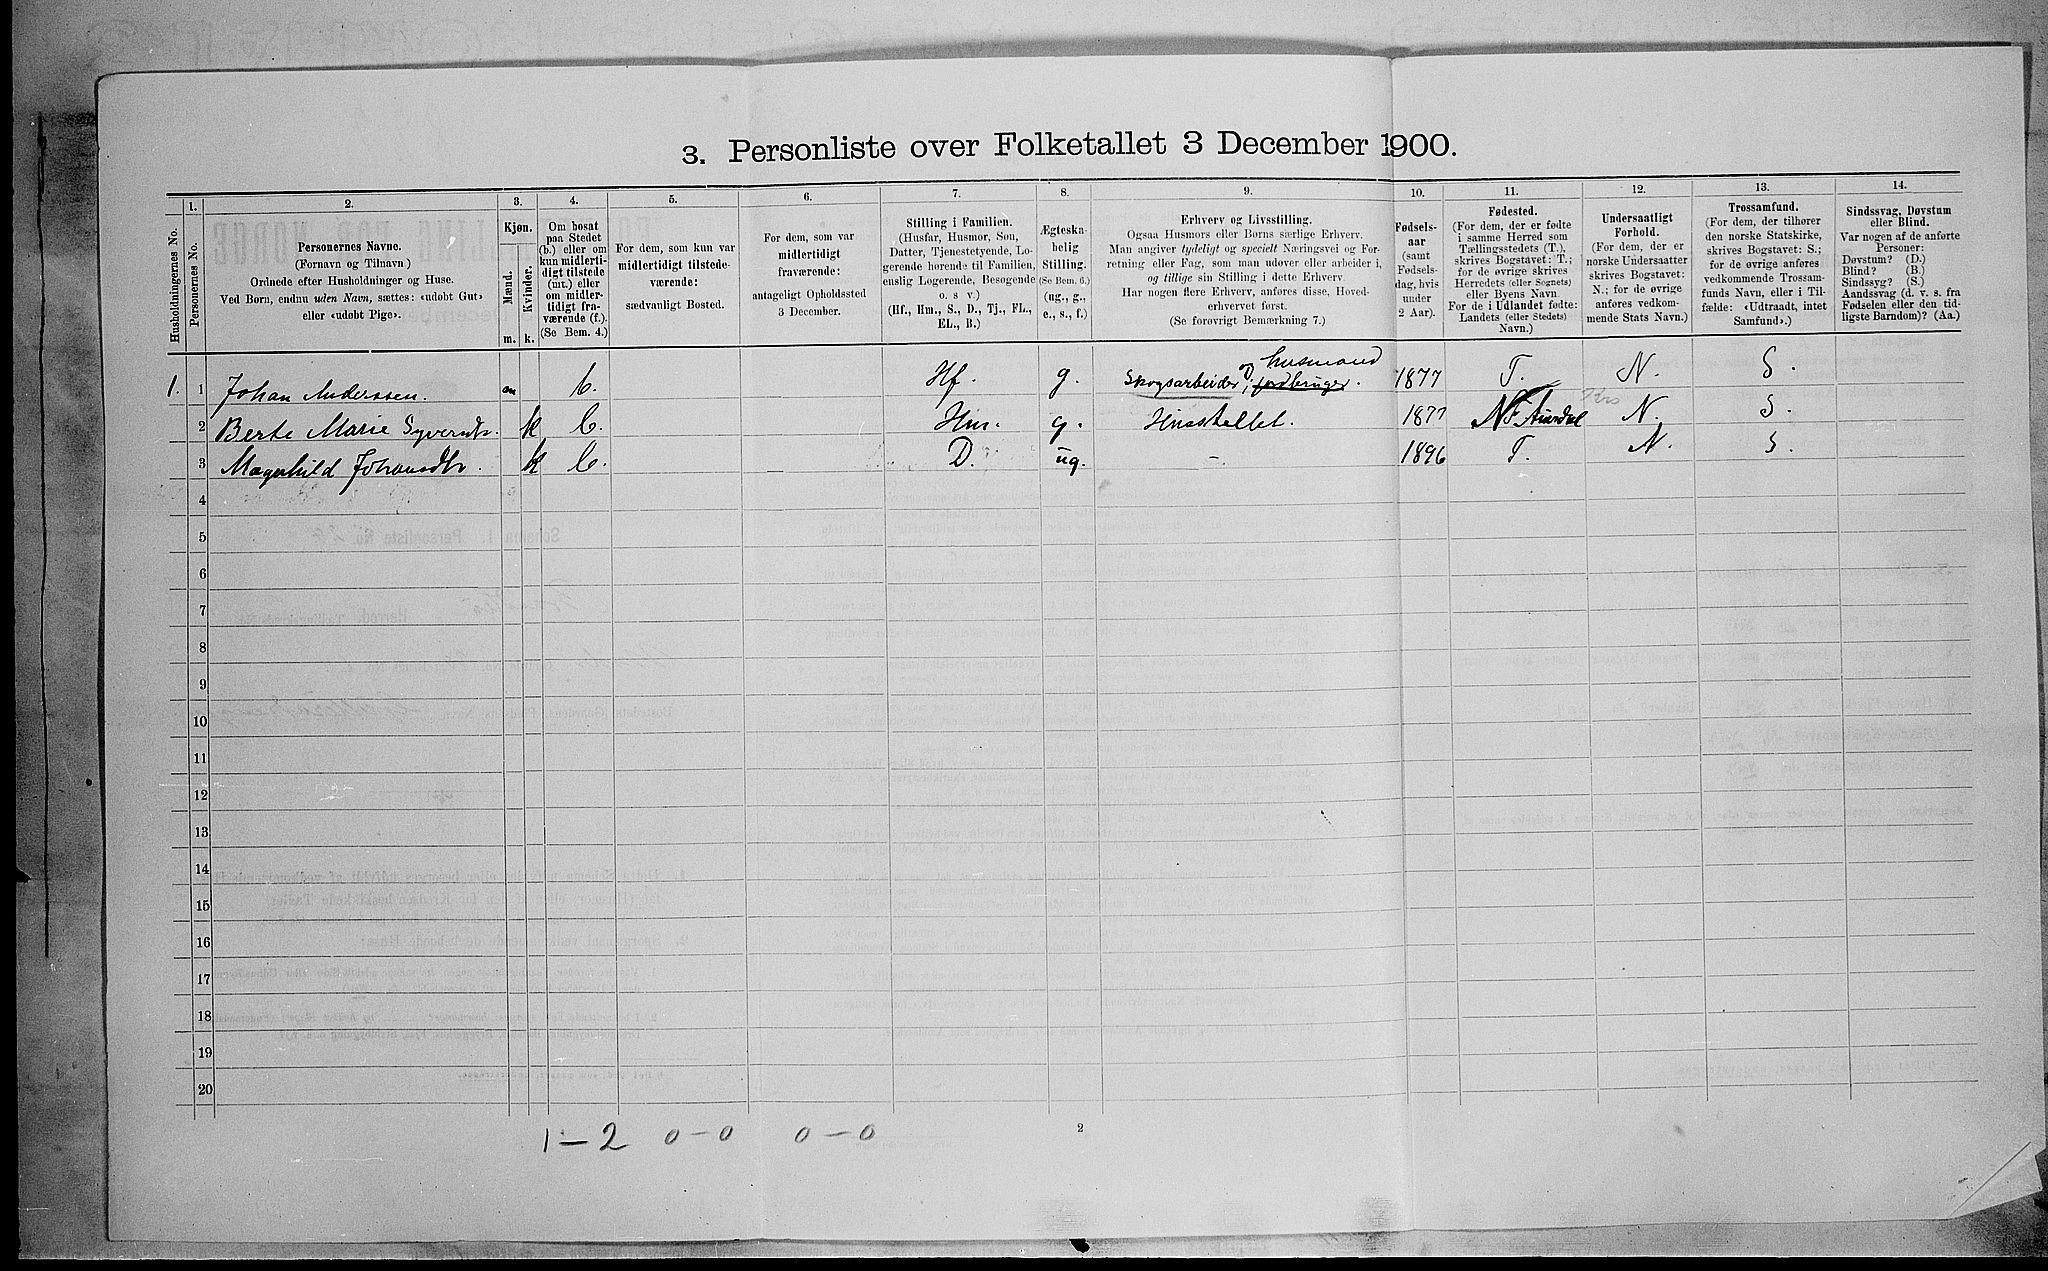 3. Personliste over Folketallet 3 December 1900.
Husholdningernes No.
1.
Personernes No.
2.
Personernes Navne.
(Fornavn og Tilnavn)
Ordnede efter Husholdninger og Huse.
Ved Børn, endnu uden Navn, sættes: «udøbt Gut»
eller «udøbt Pige».
3.
Kjøn.
Mænd.
Kvinder.
m.
k.
4.
Om bosat
paa Stedet
(b.) eller om
kun midlerti-
digt tilstede
(mt.) eller
om midler-
tidigt fra-
værende (f.).
(Se Bem. 4.)
5.
For dem, som kun var
midlertidigt tilstede-
værende:
sædvanligt Bosted.
6.
For dem, som var
midlertidigt
fraværende:
antageligt Opholdssted
3 December.
7.
Stilling i Familien.
(Husfar, Husmor, Søn,
Datter, Tjenestetyende, Lo-
gerende hørende til Familien,
enslig Logerende, Besøgende
o. s v.)
(Hf., Hm., S., D., Tj., FL.,
EL., B.)
8.
Ægteska-
belig
Stilling.
(Se Bem. 6.)
(ug., g.,
e., s., f.)
9.
Erhverv og Livsstilling.
Ogsaa Husmors eller Børns særlige Erhverv.
Man angiver tydeligt og specielt Næringsvei og For-
retning eller Fag, som man udøver eller arbeider i,
og tillige sin Stilling i dette Erhverv.
Har nogen flere Erhverv, anføres disse, Hoved-
erhvervet først.
(Se forøvrigt Bemærkning 7.)
10.
Fødsels-
aar
(samt
Fødsels-
dag, hvis
under
2 Aar).
11.
Fødested.
(For dem, der er fødte
i samme Herred som
Tællingsstedets (T.),
skrives Bogstavet: T.;
for de øvrige skrives
Herredets (eller Sognets)
eller Byens Navn
For de i Udlandet fødte:
Landets (eller Stedets)
Navn.)
12.
Undersaatligt
Forhold.
(For dem, der er
norske Undersaatter
skrives Bogstavet:
N.; for de øvrige
anføres vedkom-
mende Stats Navn.)
13.
Trossamfund.
(For dem, der tilhører
den norske Statskirke,
skrives Bogstavet: S.;
for de øvrige anføres
vedkommende Trossam-
funds Navn, eller i Til-
fælde: «Udtraadt, intet
Samfund».)
14.
Sindssvag, Døvstum
eller Blind.
Var nogen af de anførte
Personer:
Døvstum? (D.)
Blind? (B.)
Sindssyg? (S.)
Aandssvag (d. v. s. fra
Fødselen eller den tid-
ligste Barndom)? (Aa.)
1. 1 Johan Anderssen. m b. Hf. g. Skogsarbeider og husmand jordbruger. 1877 T. N. S.
2 Berte Marie Syversdtr. k b. Hm. g. Husstellet. 1877 N. Aurdal N. S.
3 Magnhild Johansdtr. k b. D. ug. - 1896 T. N. S.
4
5
6
7
8
9
10
11
12
13
14
15
16
17
18
19
20
1 – 2 0 – 0 0 – 0
2